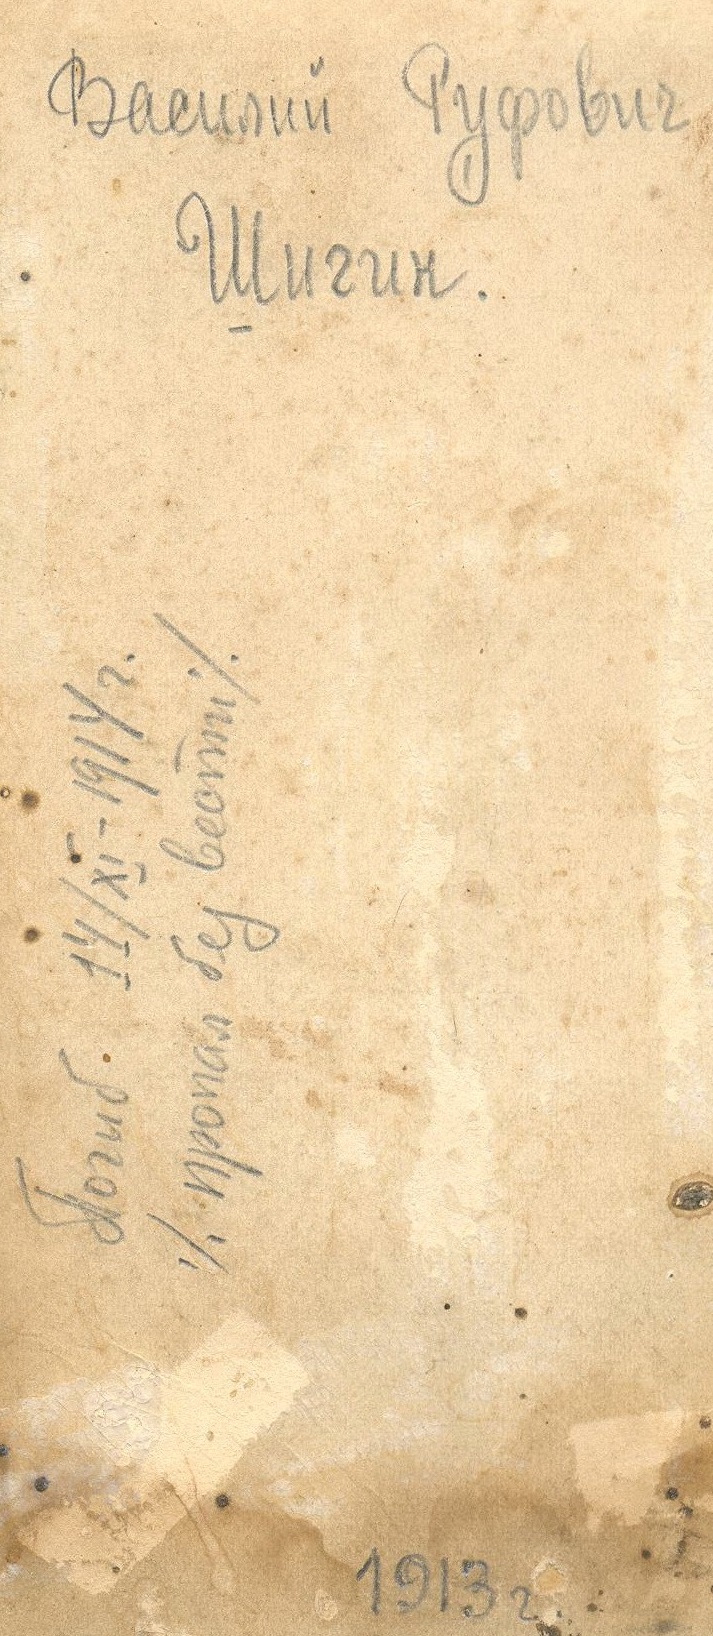 Василий Руфович
Шигин.
Погиб. 14/XI-1914 г.
·/. пропал без вести ·/.
1913 г.